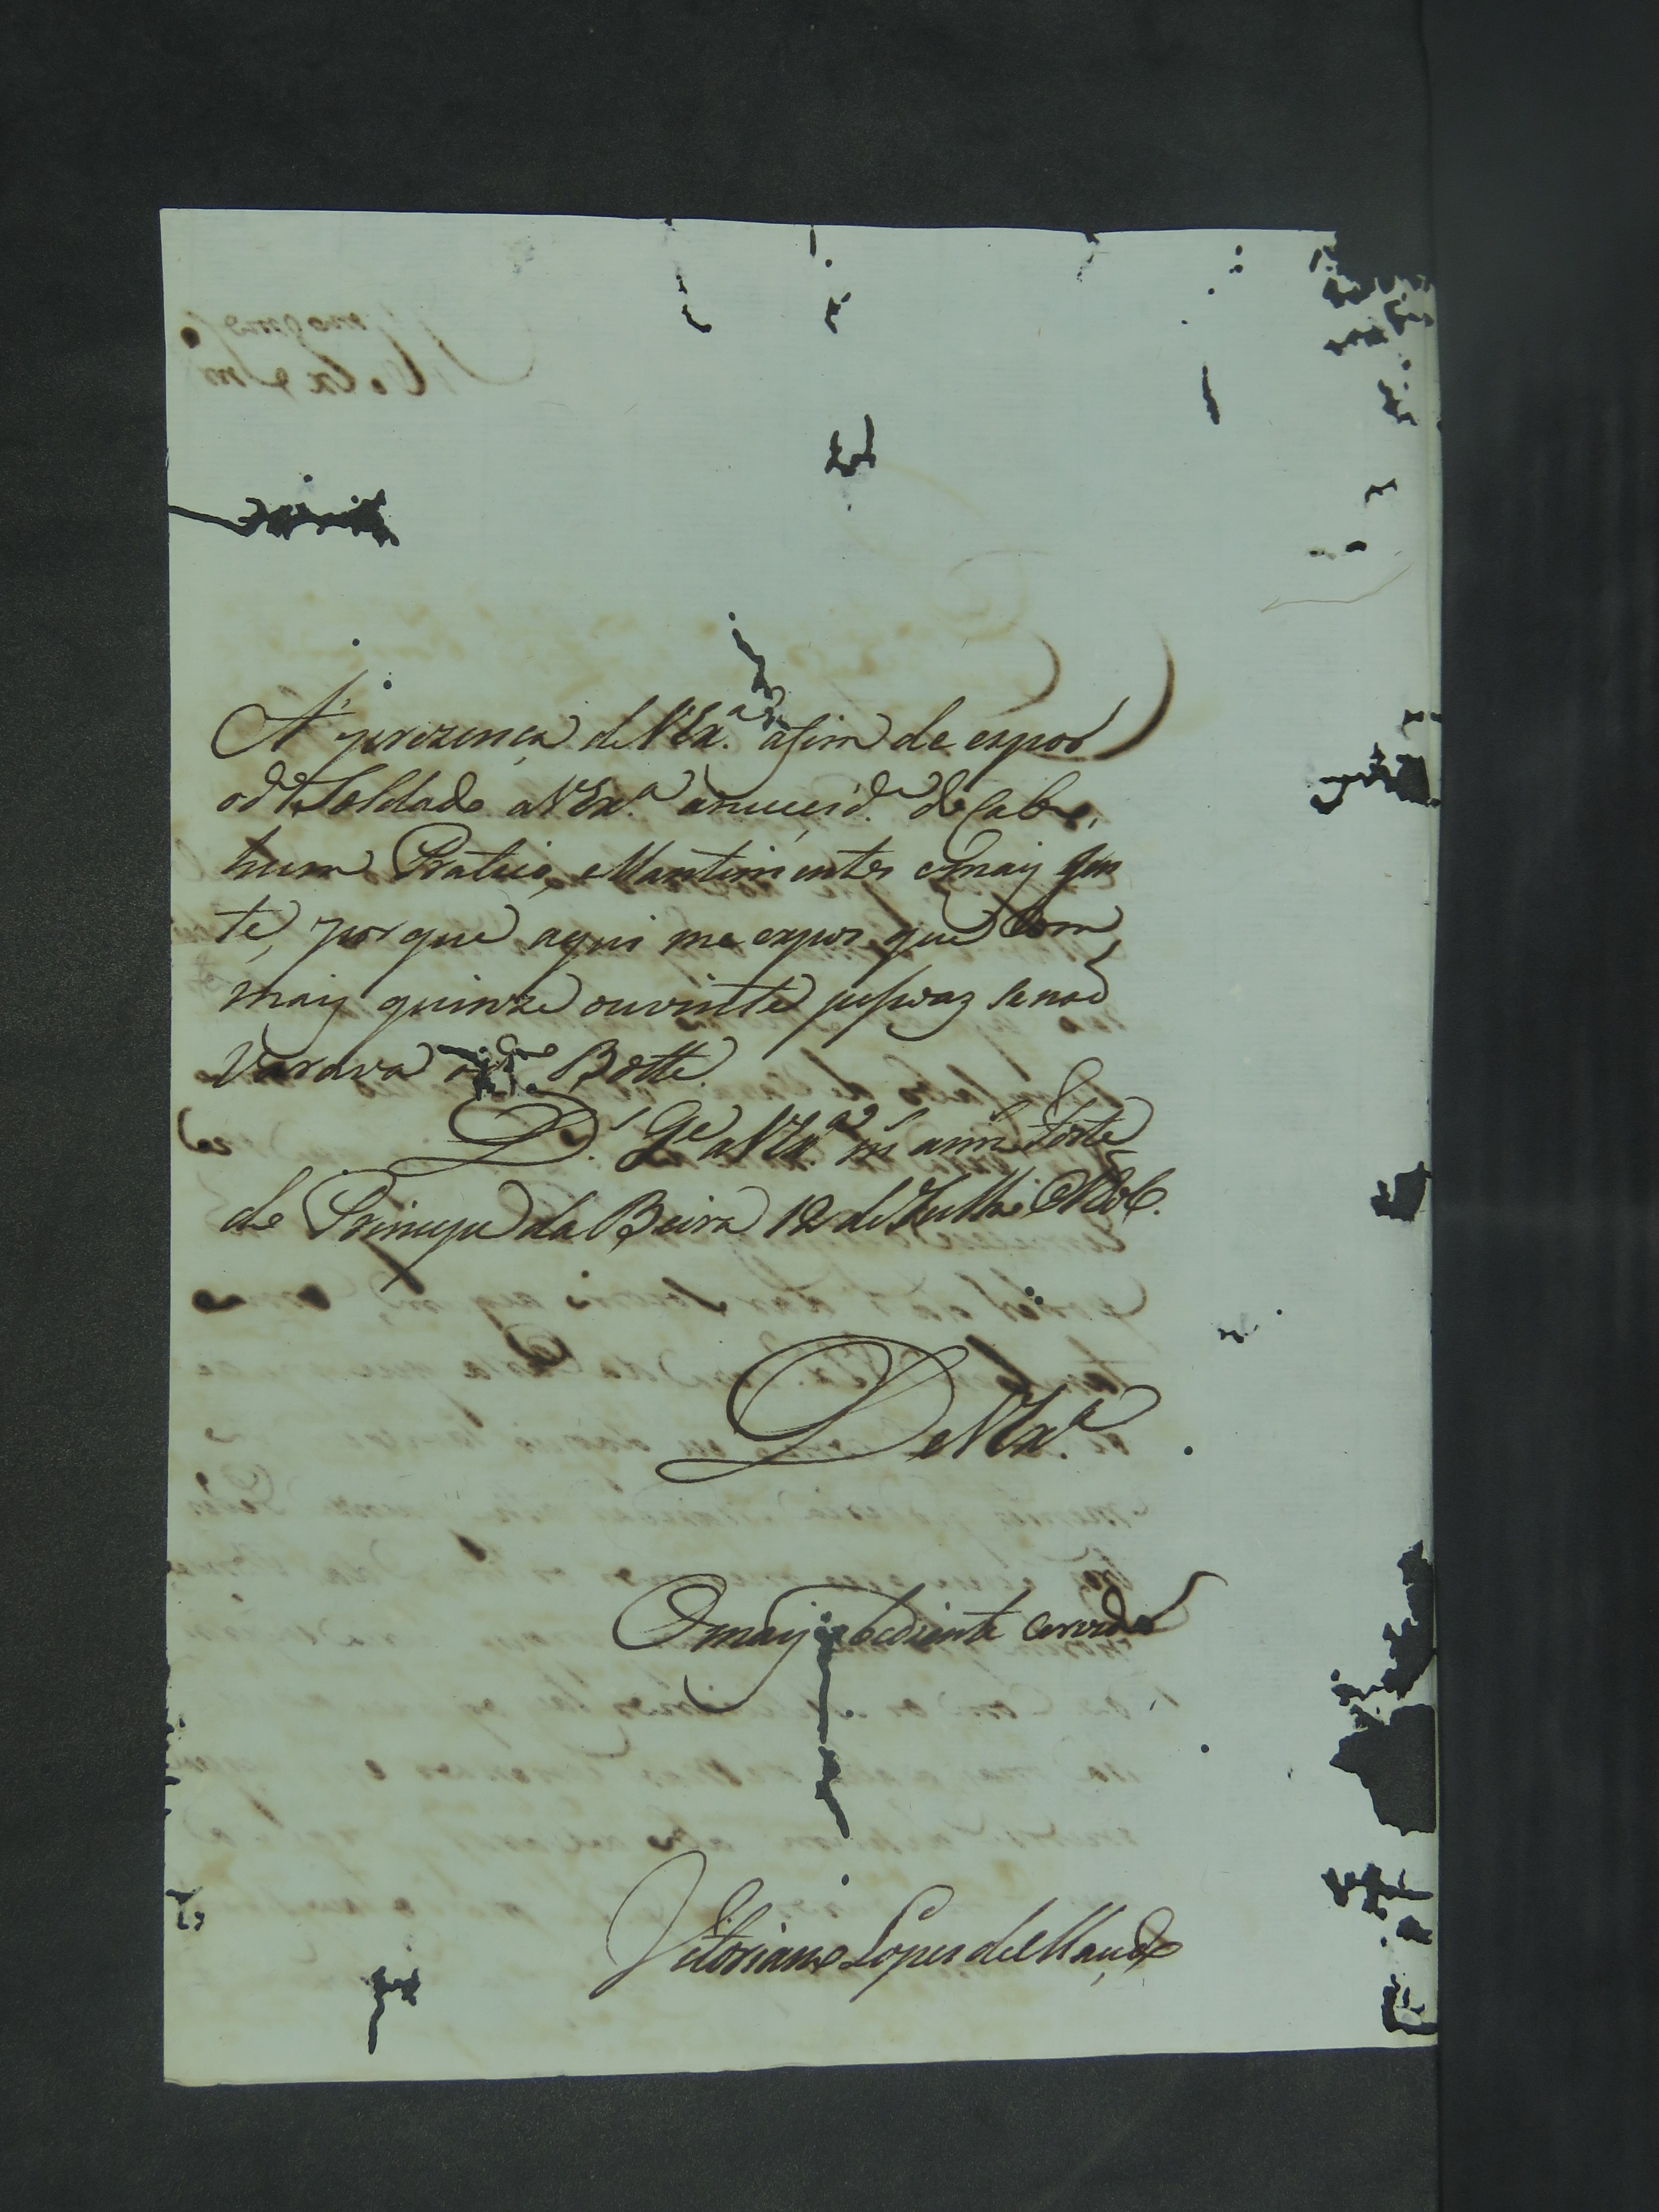 A' prezença de V Ex.ᵃˢ afim de expor
o dᵒ Soldado a V Ex.ᵃ a nuecid.ᵉ de Cabo,
hum Pratico, Mantimentos e maiz gen
te, porque aqui me expos que Com
maiz quinze ou vinte pessoaz se naõ
Varava o dᵒ Botte.
D.ˢ G.ᵉ a V Ex.ᵃˢ mˢ annˢ Forte
de Principe da Beira 12 de Julho de
De V Ex.ᵃ
O maiz obediente Cervidor
Vitoriano Lopes de Macedo